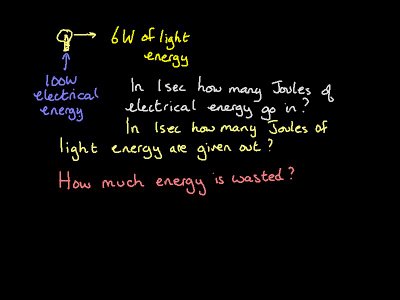 6W of light
energy
100W
electrical
energy
In 1sec how many Joules of
electrical energy go in?
In 1sec how many Joules of
light energy are given out?
How much energy is wasted?